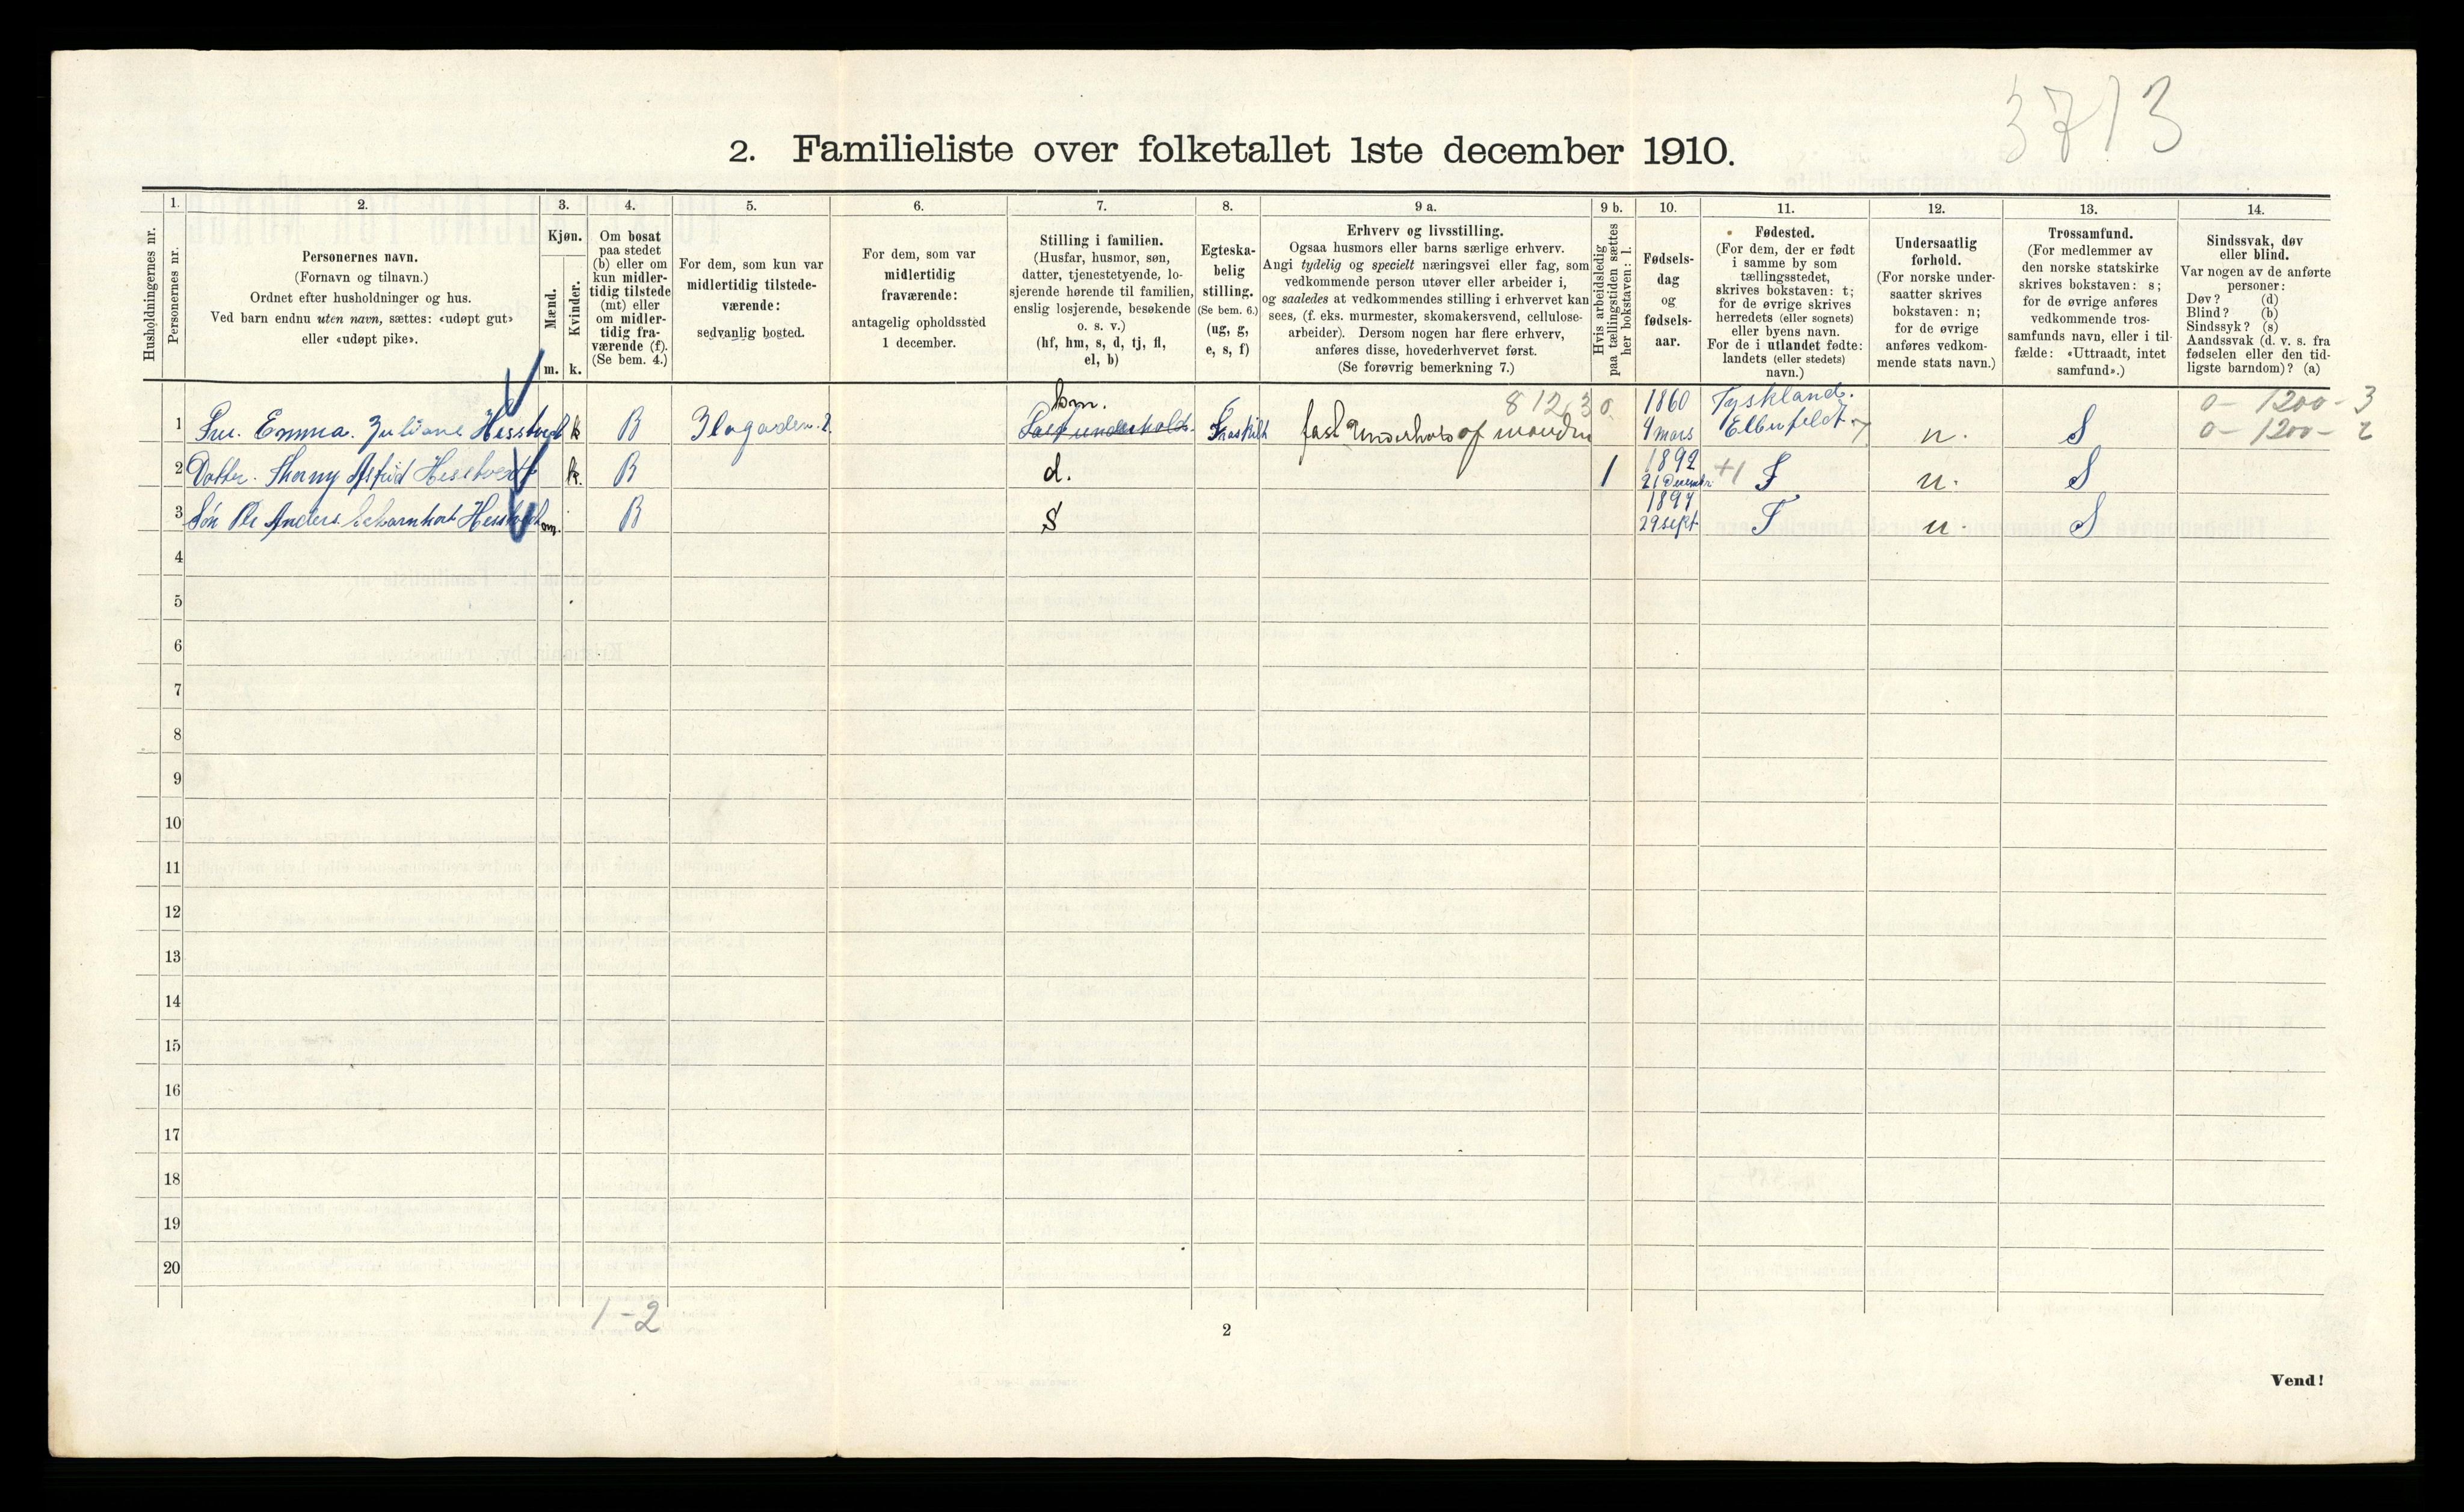 3713
2. Familieliste over folketallet 1ste december 1910.
1. 2. 3. 4. 5. 6. 7. 8. 9 a. 9 b. 10. 11. 12. 13. 14.
Husholdningernes nr.
Personernes nr.
Personernes navn.
(Fornavn og tilnavn.)
Ordnet efter husholdninger og hus.
Ved barn endnu uten navn, sættes: «udøpt gut»
eller «udøpt pike».
Kjøn.
Mænd.
Kvinder.
m. k.
Om bosat
paa stedet
(b) eller om
kun midler-
tidig tilstede
(mt) eller
om midler-
tidig fra-
værende (f).
(Se bem. 4.)
For dem, som kun var
midlertidig tilstede-
værende:
sedvanlig bosted.
For dem, som var
midlertidig
fraværende:
antagelig opholdssted
1 december.
Stilling i familien.
(Husfar, husmor, søn,
datter, tjenestetyende, lo-
sjerende hørende til familien,
enslig losjerende, besøkende
o. s. v.)
(hf, hm, s, d, tj, fl,
el, b)
Egteska-
belig
stilling.
(Se bem. 6.)
(ug, g,
e, s, f)
Erhverv og livsstilling.
Ogsaa husmors eller barns særlige erhverv.
Angi tydelig og specielt næringsvei eller fag, som
vedkommende person utøver eller arbeider i,
og saaledes at vedkommendes stilling i erhvervet kan
sees, (f. eks. murmester, skomakersvend, cellulose-
arbeider). Dersom nogen har flere erhverv,
anføres disse, hovederhvervet først.
(Se forøvrig bemerkning 7.)
Hvis arbeidsledig
paa tællingstiden sættes
her bokstaven: l.
Fødsels-
dag
og
fødsels-
aar.
Fødested.
(For dem, der er født
i samme by som
tællingsstedet,
skrives bokstaven: t;
for de øvrige skrives
herredets (eller sognets)
eller byens navn.
For de i utlandet fødte:
landets (eller stedets)
navn.)
Undersaatlig
forhold.
(For norske under-
saatter skrives
bokstaven: n;
for de øvrige
anføres vedkom-
mende stats navn.)
Trossamfund.
(For medlemmer av
den norske statskirke
skrives bokstaven: s;
for de øvrige anføres
vedkommende tros-
samfunds navn, eller i til-
fælde: «Uttraadt, intet
samfund».)
Sindssvak, døv
eller blind.
Var nogen av de anførte
personer:
Døv? (d)
Blind? (b)
Sindssyk? (s)
Aandssvak (d. v. s. fra
fødselen eller den tid-
ligste barndom)? (a)
hm. 812,3 0. 1860 Tyskland. 0 – 1200 – 3
1 Fru. Emma. Juliane Hesstvedt k B Ilagaden. 2. Fast underholds. Fraskilt fast Underhold af manden 4 mars Elberfeldt 7 n. S 0 – 1200 – 2
2 Datter. Thorny Astrid Hesstvedt k. B d. 1 1892 21 Decembr +1 T n. S
3 Søn Per Anders Scharnhort Hesstvedt m. B S 1894 29 sept T n S
4
5
6
7
8
9
10
11
12
13
14
15
16
17
18
19
20
1 – 2
2
Vend!